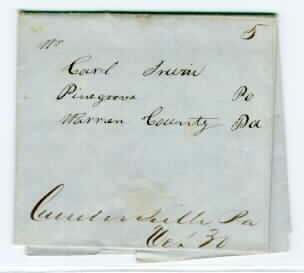 5
Mr
Carl Irwin
Pinegrove Po
Warren County Pa
Pa
30